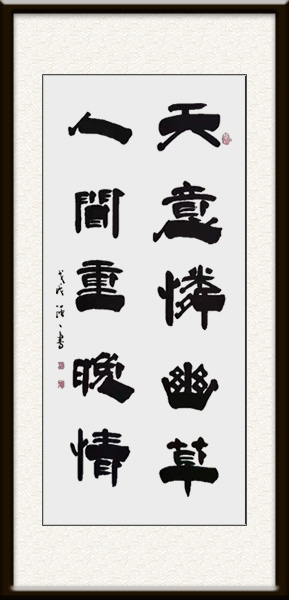 天意憐幽草
人間重晚情
戊戌 書